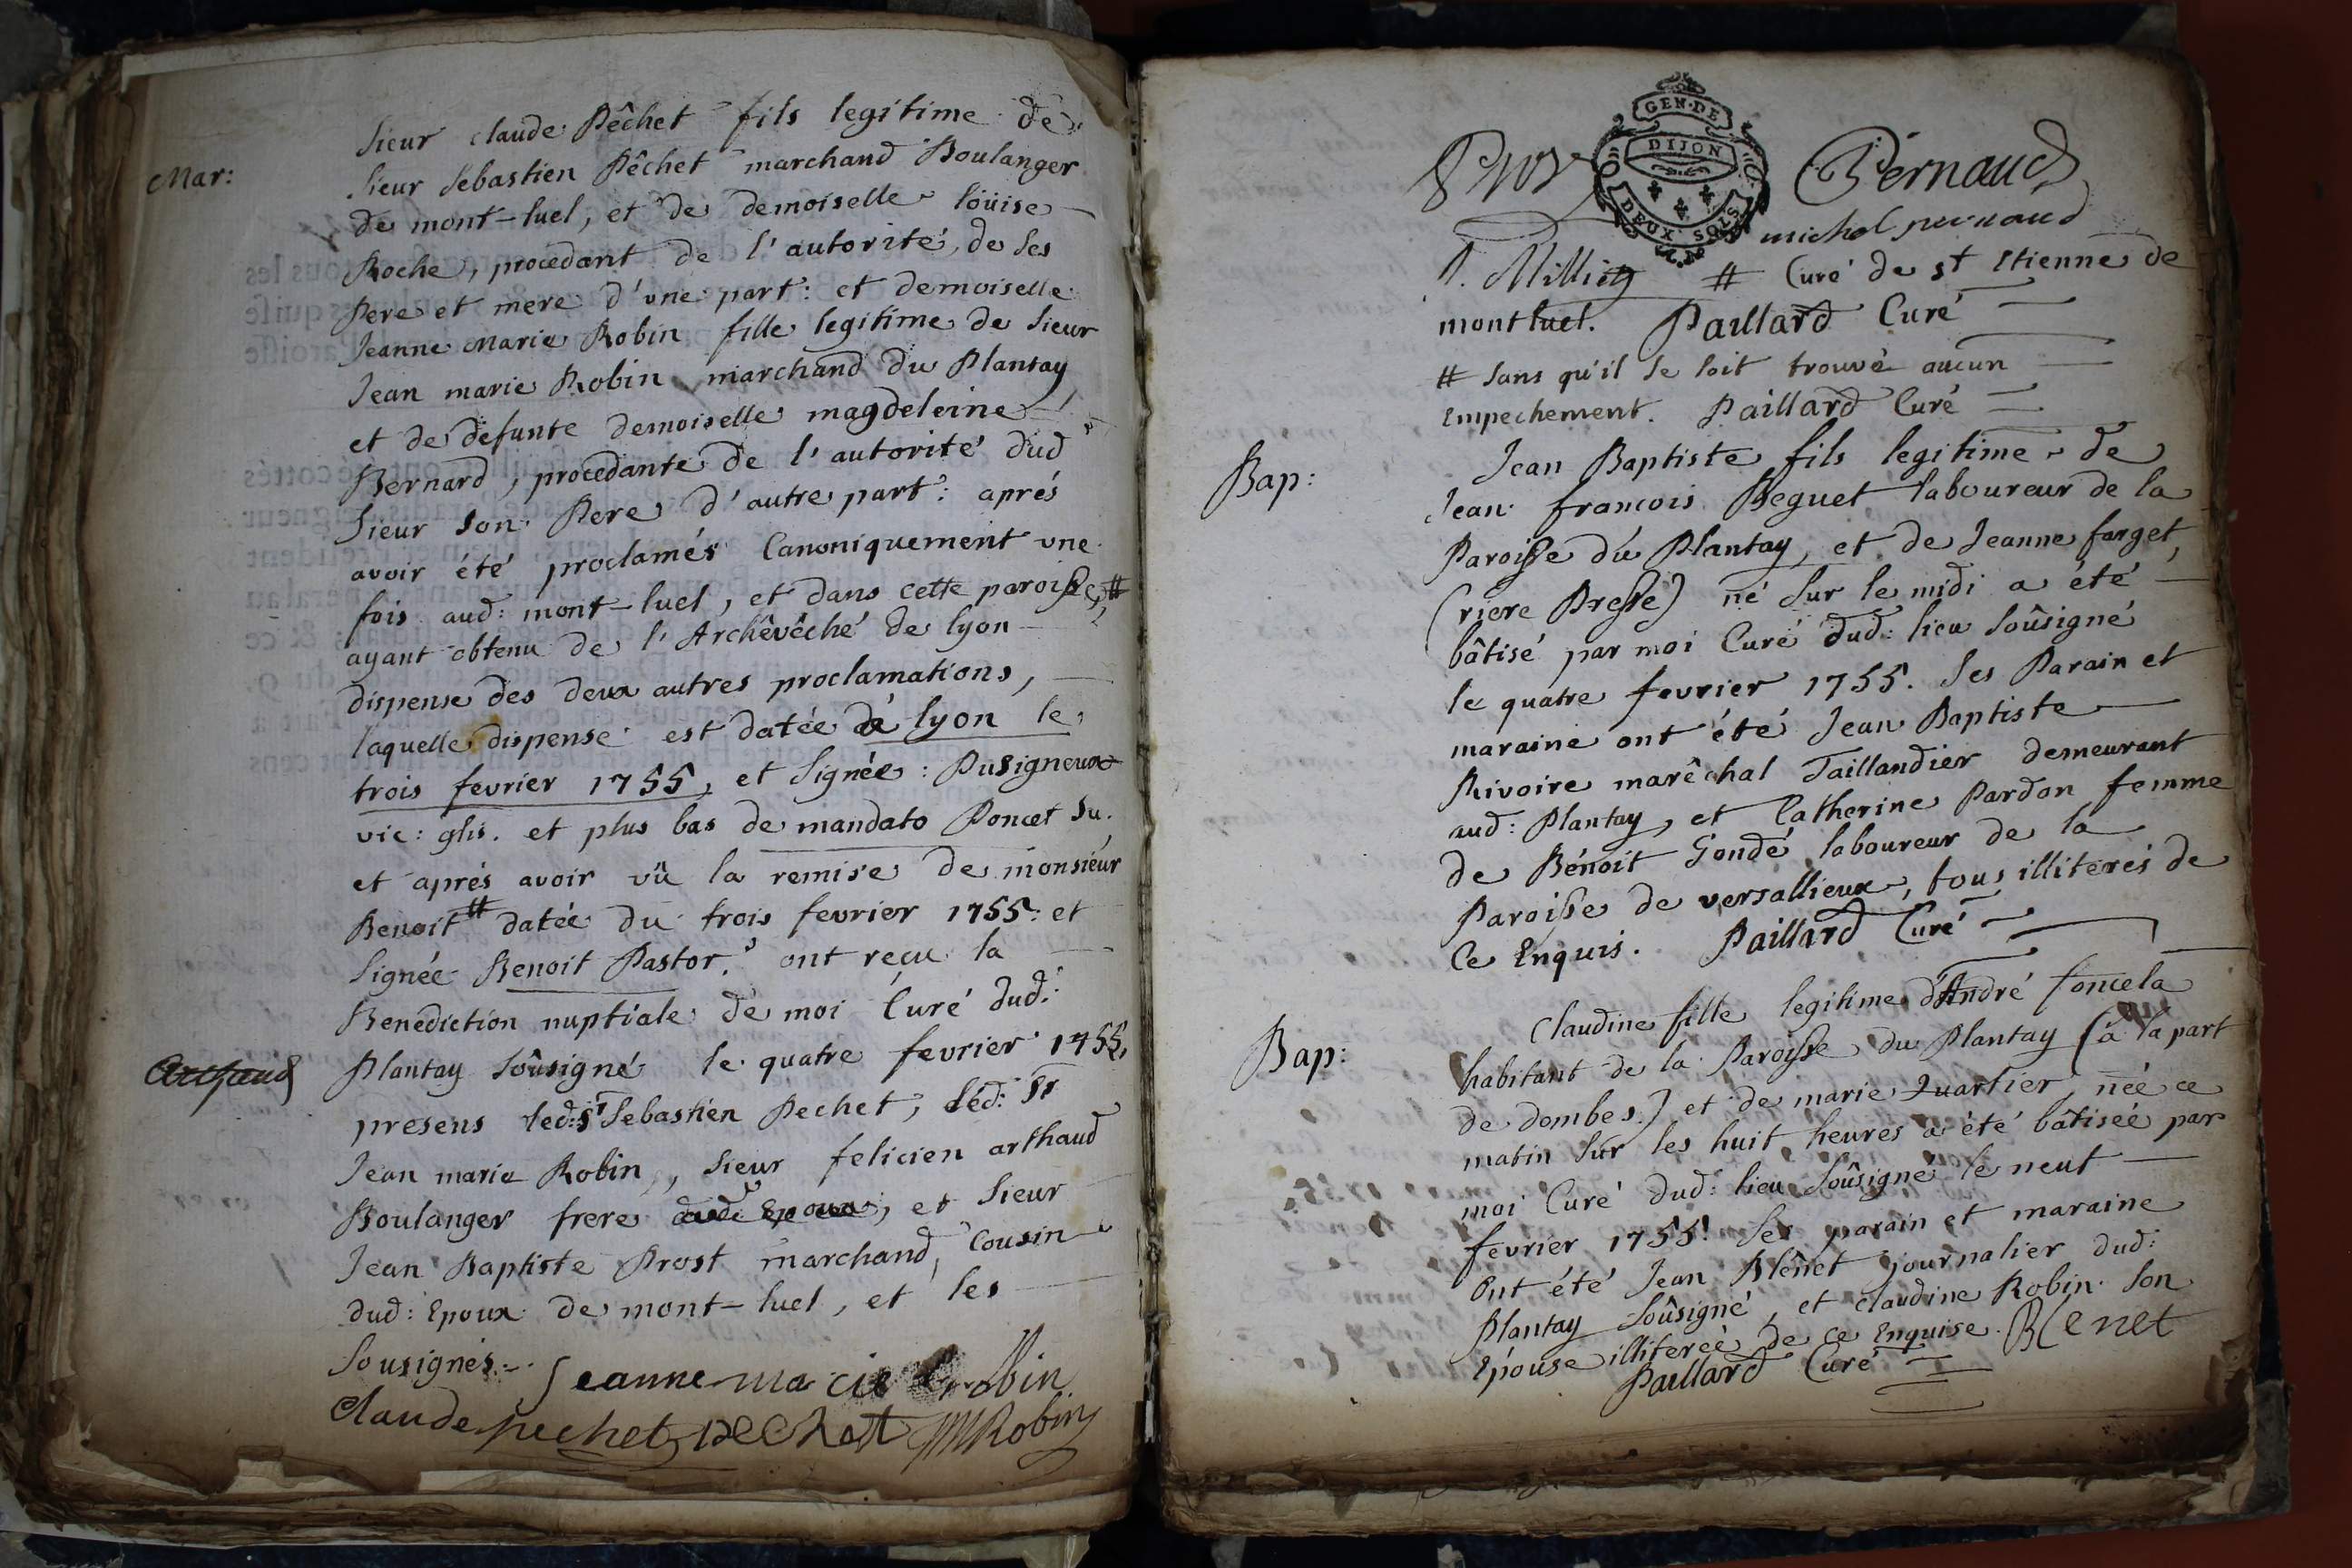 Mar:
Sieur claude Pêchet fils legitime de
Sieur Sebastien Pêchet marchand Boulanger
de mont-luel, et de demoiselle loüise
Roche, procedant de l'autorité de ses
Pere et mere d'une part: et demoiselle
Jeanne Marie Robin fille legitime de Sieur
Jean marie Robin marchand du Plantay,
et de defunte demoiselle magdeleine
Bernard, procedante de l'autorité dud
Sieur son Pere d'autre part: aprés
avoir été proclamés Canoniquement une
fois aud: mont-luel, et dans cette paroisse, #
ayant obtenu de l'Archêvêché de lyon
dispense des deux autres proclamations,
laquelle dispense est datée à lyon le
trois fevrier 1755, et signée: Pusigneux
vic: glis. et plus bas de mandato Poncet Su.
et aprés avoir vû la remise de monsieur
Benoit # datée du trois fevrier 1755: et
signée Benoit Pastor. ont reçu la
Benediction nuptiale de moi Curé dud:
Plantay soûsigné le quatre fevrier 1755,
presens led: Sr Sebastien Pechet, led: Sr
Jean marie Robin, sieur felicien arthaud
Boulanger frere et Sieur
Jean Baptiste Prost marchand, Cousin
dud: Epoux de mont-luel, et les
Sousignés.
Jeanne marie Robin
Claude pechet pechet JM Robin
GEN. DE
DIJON
DEUX SOLS
Pernaud
michel pernaud
Millien # Curé de st Etienne de
montluel. Paillard Curé
# sans qu'il se soit trouvé aucun
Empechement. Paillard Curé
Bap:
Jean Baptiste fils legitime de
Jean francois Beguet laboureur de la
Paroisse du Plantay, et de Jeanne farget,
(riere Bresse) né sur le midi a été
bâtisé par moi Curé dud: lieu soûsigné
le quatre fevrier 1755. Ses Parain et
maraine ont été Jean Baptiste
Rivoire marêchal Taillandier demeurant
aud: Plantay, et Catherine Pardon femme
de Bénoit Gondé laboureur de la
Paroisse de versallieux, tous illiterés de
Ce Enquis. Paillard Curé
Bap:
Claudine fille legitime d'André foncela
habitant de la Paroisse du Plantay (à la part
de dombes.) et de marie Quartier, née ce
matin sur les huit heures a été bâtisée par
moi Curé dud: lieu soûsigné le neuf
fevrier 1755. Ses parain et maraine
Ont été Jean Blênet journalier dud:
Plantay soûsigné, et claudine Robin son
Epouse illiterée de ce Enquise. Blenet
Paillard Curé